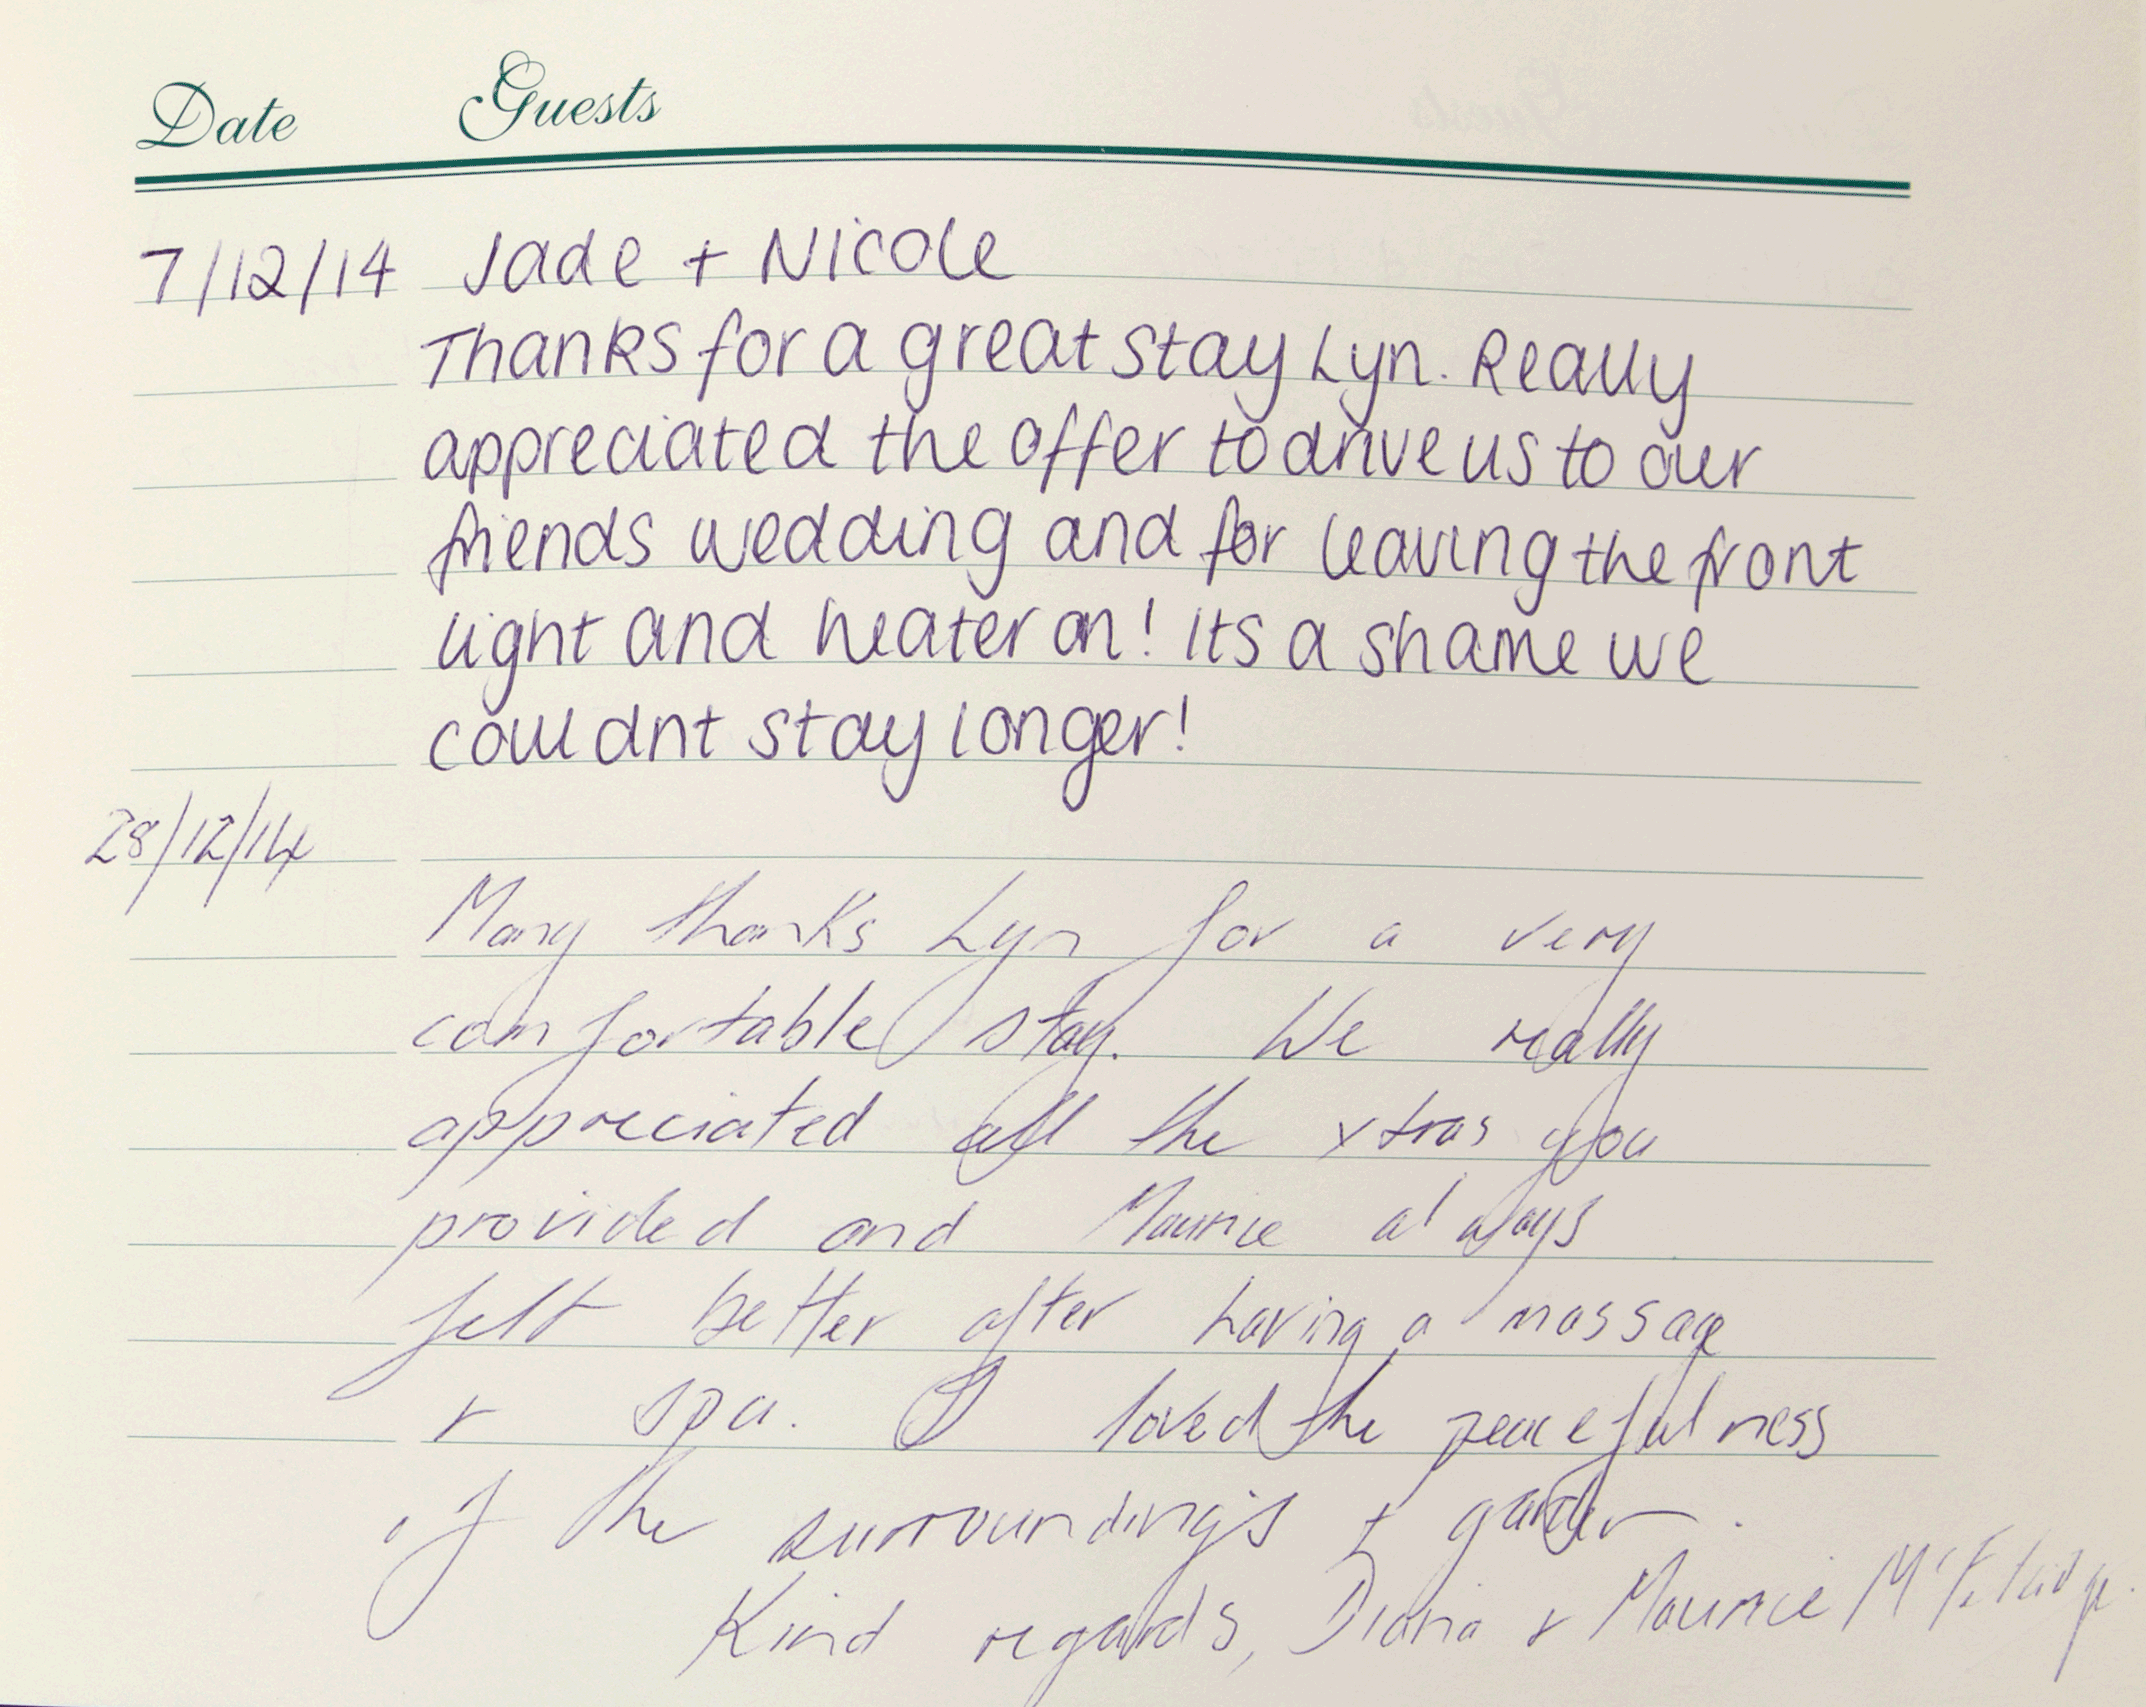 Date Guests
7/12/14 Jade + Nicole
Thanks for a great stay Lyn. Really
appreciated the offer to drive us to our
friends wedding and for leaving the front
light and heater on! Its a shame we
couldnt stay longer!
28/12/14
Many thanks Lyn for a very
comfortable stay. We really
appreciated all the xtras you
provided and Maurice always
felt better after having a massage
+ spa. I loved the peacefulness
of the surroundings + garden.
Kind regards, Diana + Maurice